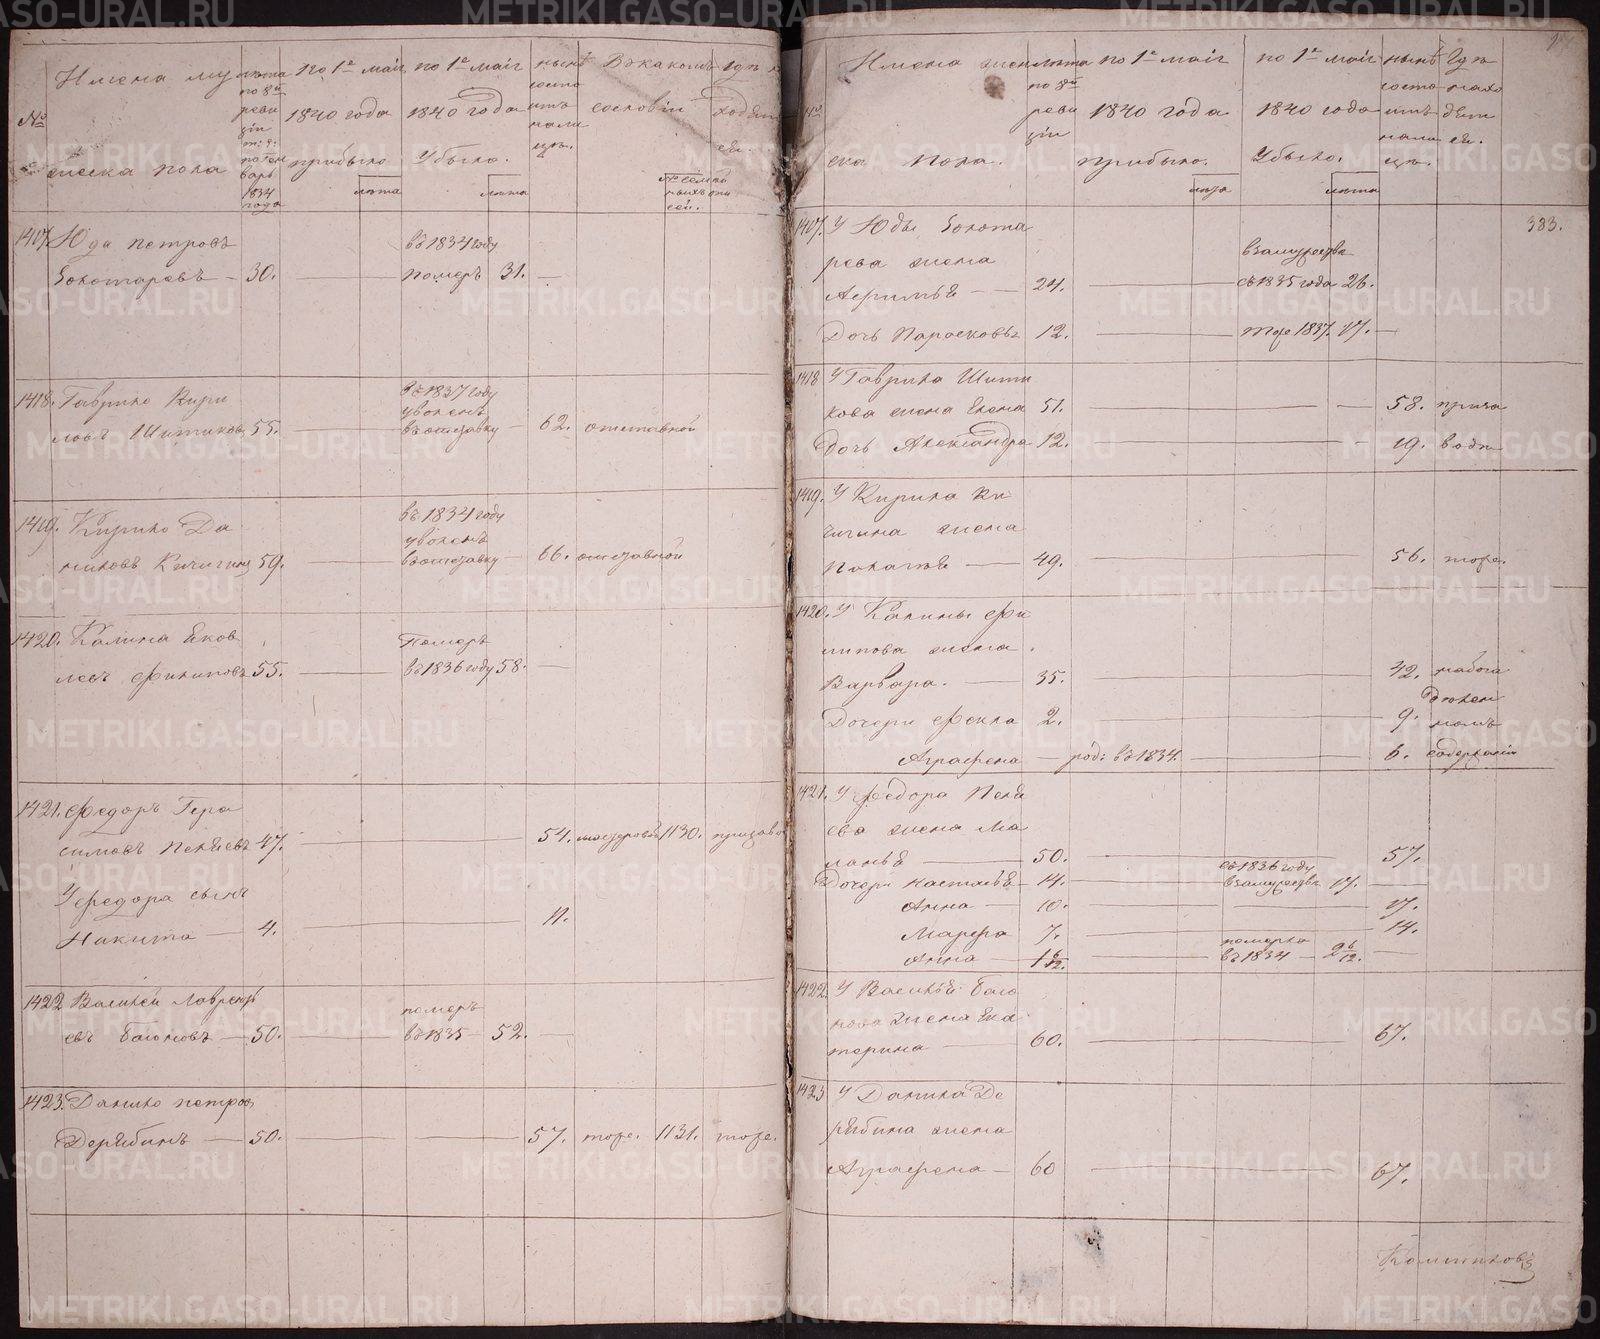 №
Имена му
жеска пола
лѣта
по 8й
реви
зіи
по Ген
варь
1834
года
По 1е маія
1840 года
прибыло
лѣта
по 1е маія
1840 года
Убыло.
лѣта
нынѣ
состо
итъ
нали
цо.
Въ какомъ
сословіи
№ семей
ныхъ спи
сей.
гдѣ на
ходят
ся.
1417. Юда Петровъ
Золотаревъ — 30. въ 1834 году
померъ 31. —
1418. Гаврило Кири
ловъ Шитиковъ 55. въ 1837 году
уволенъ
въ отставку — 62. отставной
1419. Кирило Да
ниловъ Кичигинъ 59. въ 1834 году
уволенъ
въ отставку — 66. отставной
1420. Калина Яков
левъ Филиповъ 55. Померъ
въ 1836 году 58. —
1421. Федоръ Гера
симовъ Пеняевъ 47. 54. мастеровой 1130. при заво
У Федора сынъ
Никита — 4. 11.
1422 Василей Лаврентъ
евъ Баюновъ — 50. померъ
въ 1835 — 52.
1423. Данило Петровъ
Дерябинъ — 50. 57. тоже. 1131. тоже.
№
Имена жен
ска пола.
лѣта
по 8й
реви
зіи
по 1е маія
1840 года
прибыло.
лѣта
по 1е маія
1840 года
Убыло.
лѣта
нынѣ
состо
итъ
нали
цо.
Гдѣ
нахо
дят
ся.
383.
1417. У Юды Золота
рева жена
Афимья — 24. въ замужества
съ 1835 года 26.
Дочь Парасковья 12. тоже 1837. 17. —
1418 У Гаврила Шити
кова жена Елена 51. 58. при за
Дочь Александра 12. 19. водѣ
1419. У Кирила Ки
чигина жена
Пелагѣя — 49. 56. тоже.
1420. У Калины Фи
липова жена
Варвара. — 35. 42. на бога
Дочери Фекла 2. 9.
дѣлен
номъ
Аграфена — род: въ 1834. 6. содержаніи
1421. У Федора Пеня
ева жена Ма
ланья — 50. 57.
Дочери Настасья — 14. съ 1836 году
въ замужествѣ 17. —
Анна — 10. 17.
Марфа 7. 14.
Анна — 1 6/12. померла
въ 1834 — 2 6/12. —
1422. У Василья Баю
нова жена Ека
терина — 60. 67.
1423 У Данила Де
рябина жена
Аграфена — 60 67.
METRIKI.GASO-URAL.RU